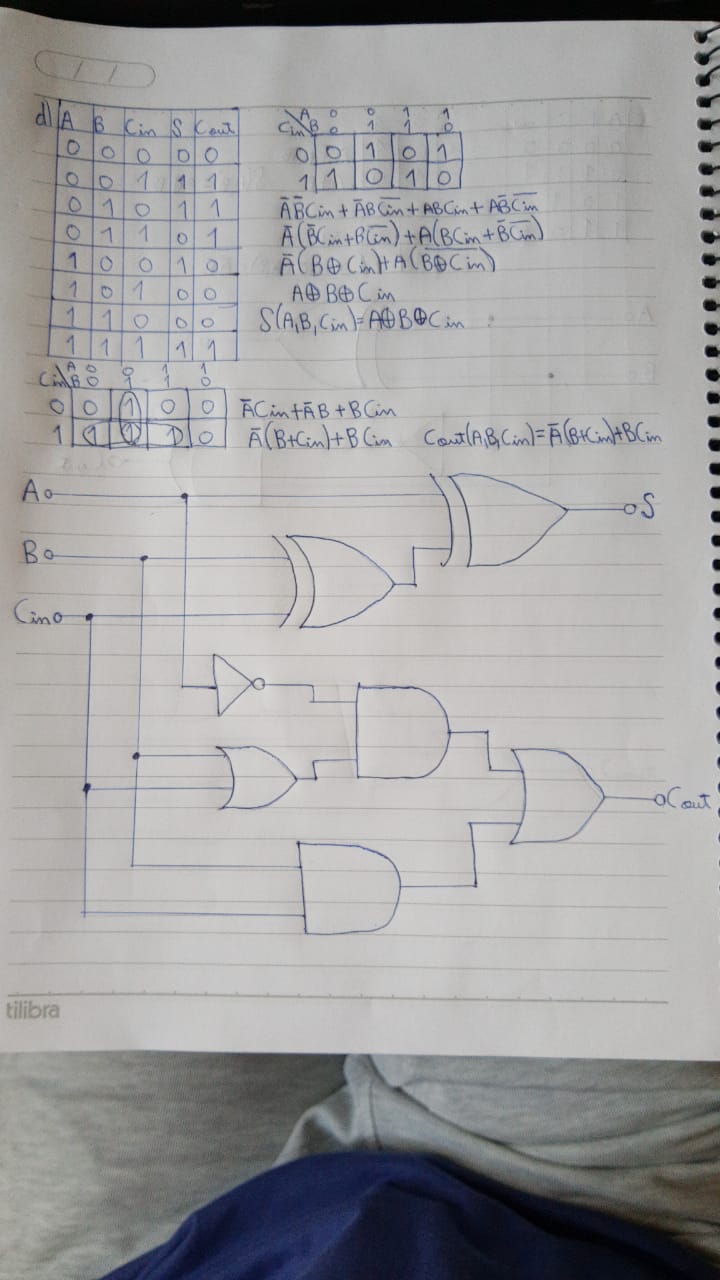 d) A B Cin S Cout
0 0 0 0 0
0 0 1 1 1
0 1 0 1 1
0 1 1 0 1
1 0 0 1 0
1 0 1 0 0
1 1 0 0 0
1 1 1 1 1
A 0 0 1 1
Cin\B 0 1 1 0
0 0 1 0 1
1 1 0 1 0
A̅B̅Cin + A̅BC̅i̅n̅ + ABCin + AB̅C̅i̅n̅
A̅(B̅Cin+BC̅i̅n̅)+A(BCin+B̅C̅i̅n̅)
A̅(B⊕Cin)+A(B̅⊕̅C̅i̅n̅)
A⊕B⊕Cin
S(A,B,Cin)=A⊕B⊕Cin
A 0 0 1 1
Cin\B 0 1 1 0
0 0 1 0 0
1 1 1 1 0
A̅Cin+A̅B+BCin
A̅(B+Cin)+BCin
Cout(A,B,Cin)=A̅(B+Cin)+BCin
A
S
B
Cin
Cout
tilibra